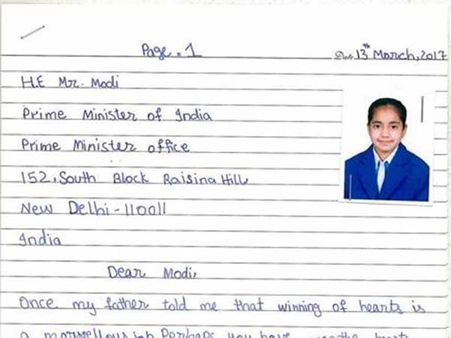 Page.1
Date 13th March, 2017
H.E Mr. Modi
Prime Minister of India
Prime Minister office
152, South Block Raisina Hill,
New Delhi-110011
India
Dear Modi,
Once my father told me that winning of hearts is
a marvellous job Perhaps you have